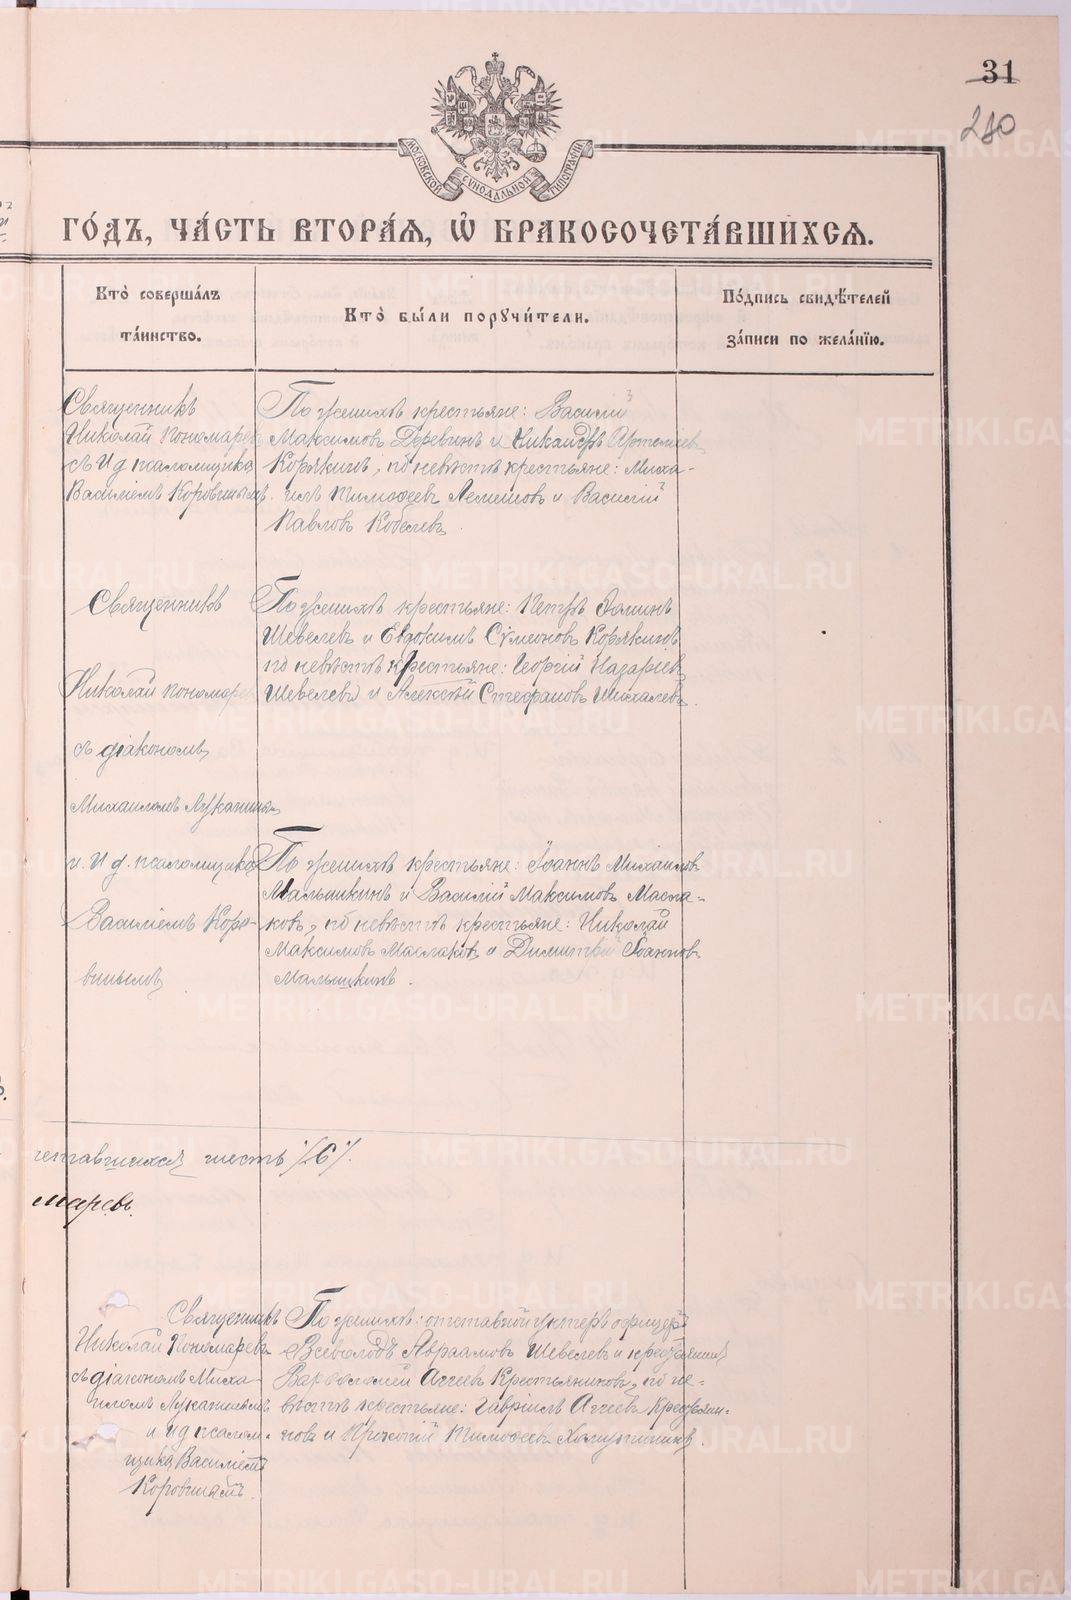 31
240
МОСКОВСКОЙ СѴНОДАЛЬНОЙ ТИПОГРАФІИ
ГОДЪ, ЧАСТЬ ВТОРАѦ, Ѡ БРАКОСОЧЕТАВШИХСѦ.
Кто совершалъ таинство.
Кто были поручители.
Подпись свидѣтелей записи по желанію.
Священникъ
Николай Пономаревъ
съ И д псаломщика
Василіемъ Коровинымъ.
По женихѣ крестьяне: Василій
Максимовъ Деревинъ и Никандръ Артеміевъ
Корякинъ; по невѣстѣ крестьяне: Миха-
илъ Тимоѳеевъ Лемешовъ и Василій
Павловъ Кобелевъ.
Священникъ
Николай Пономаревъ
съ діакономъ
Михаиломъ Лукани
и И д. псаломщика
Василіемъ Коро-
винымъ
По женихѣ крестьяне: Петръ Ѳоминъ
Шевелевъ и Евдокимъ Сѵмеоновъ Корякинъ,
по невѣстѣ крестьяне: Георгій Назаріевъ
Шевелевъ и Алексѣй Стефановъ Михалевъ.
По женихѣ крестьяне: Іоаннъ Михаиловъ
Мальшикинъ и Василій Максимовъ Масла-
ковъ, по невѣстѣ крестьяне: Николай
Максимовъ Маслаковъ и Димитрій Іоанновъ
Мальшикинъ.
четавшихся шесть /6/.
маревъ.
Священникъ
Николай Пономаревъ
съ діакономъ Миха-
иломъ Луканинымъ
и И д псалом-
щика Василіемъ
Коровинымъ.
По женихѣ: отставной унтеръ офицеръ
Всеволодъ Авраамовъ Шевелевъ и крестьянинъ
Варѳоломей Аггеевъ Крестьяниковъ, по не-
вѣстѣ крестьяне: Гавріилъ Аггеевъ Крестьян-
ковъ и Прокопій Тимоѳеевъ
METRIKI.GASO-URAL.RU